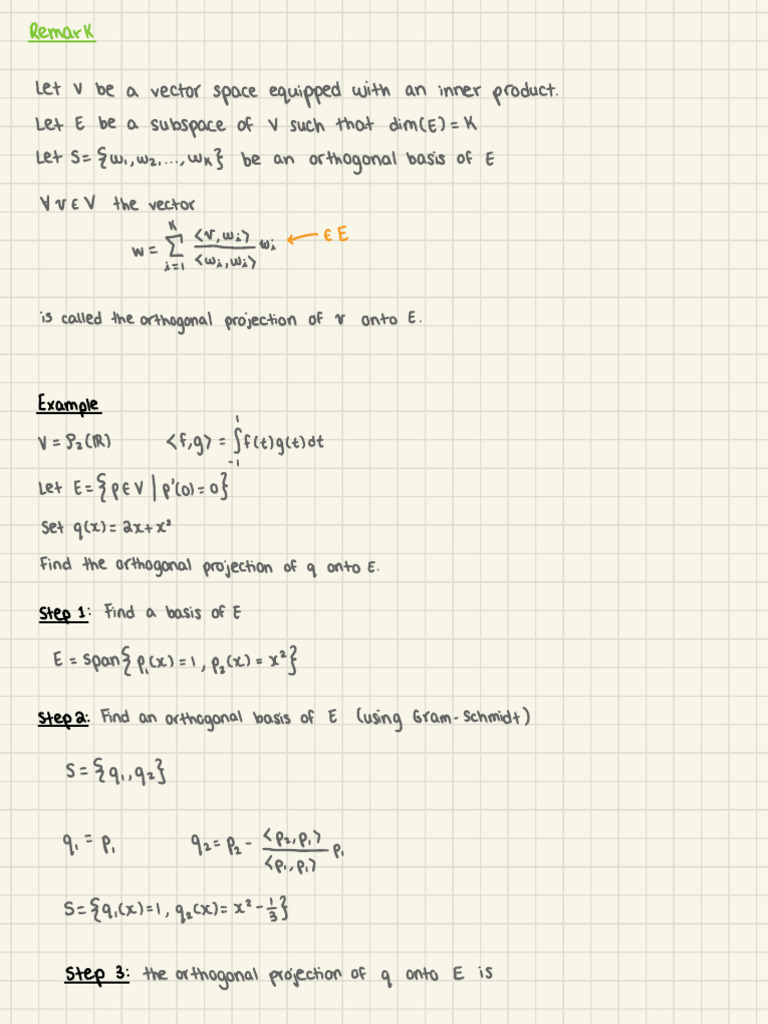 Remark
Let V be a vector space equipped with an inner product.
Let E be a subspace of V such that dim(E) = K
Let S = {w₁, w₂, ..., wₖ} be an orthogonal basis of E
∀ v ∈ V the vector
w = ∑_{i=1}^{K} <v, wᵢ> / <wᵢ, wᵢ> wᵢ ← ∈ E
is called the orthogonal projection of v onto E.
Example
V = P₂(ℝ) <f, g> = ∫_{-1}^{1} f(t)g(t)dt
Let E = {p ∈ V | p'(0) = 0}
Set q(x) = 2x + x²
Find the orthogonal projection of q onto E.
Step 1: Find a basis of E
E = span{p₁(x) = 1, p₂(x) = x²}
Step 2: Find an orthogonal basis of E (using Gram-Schmidt)
S = {q₁, q₂}
q₁ = p₁ q₂ = p₂ - <p₂, p₁> / <p₁, p₁> p₁
S = {q₁(x) = 1, q₂(x) = x² - 1/3}
Step 3: the orthogonal projection of q onto E is